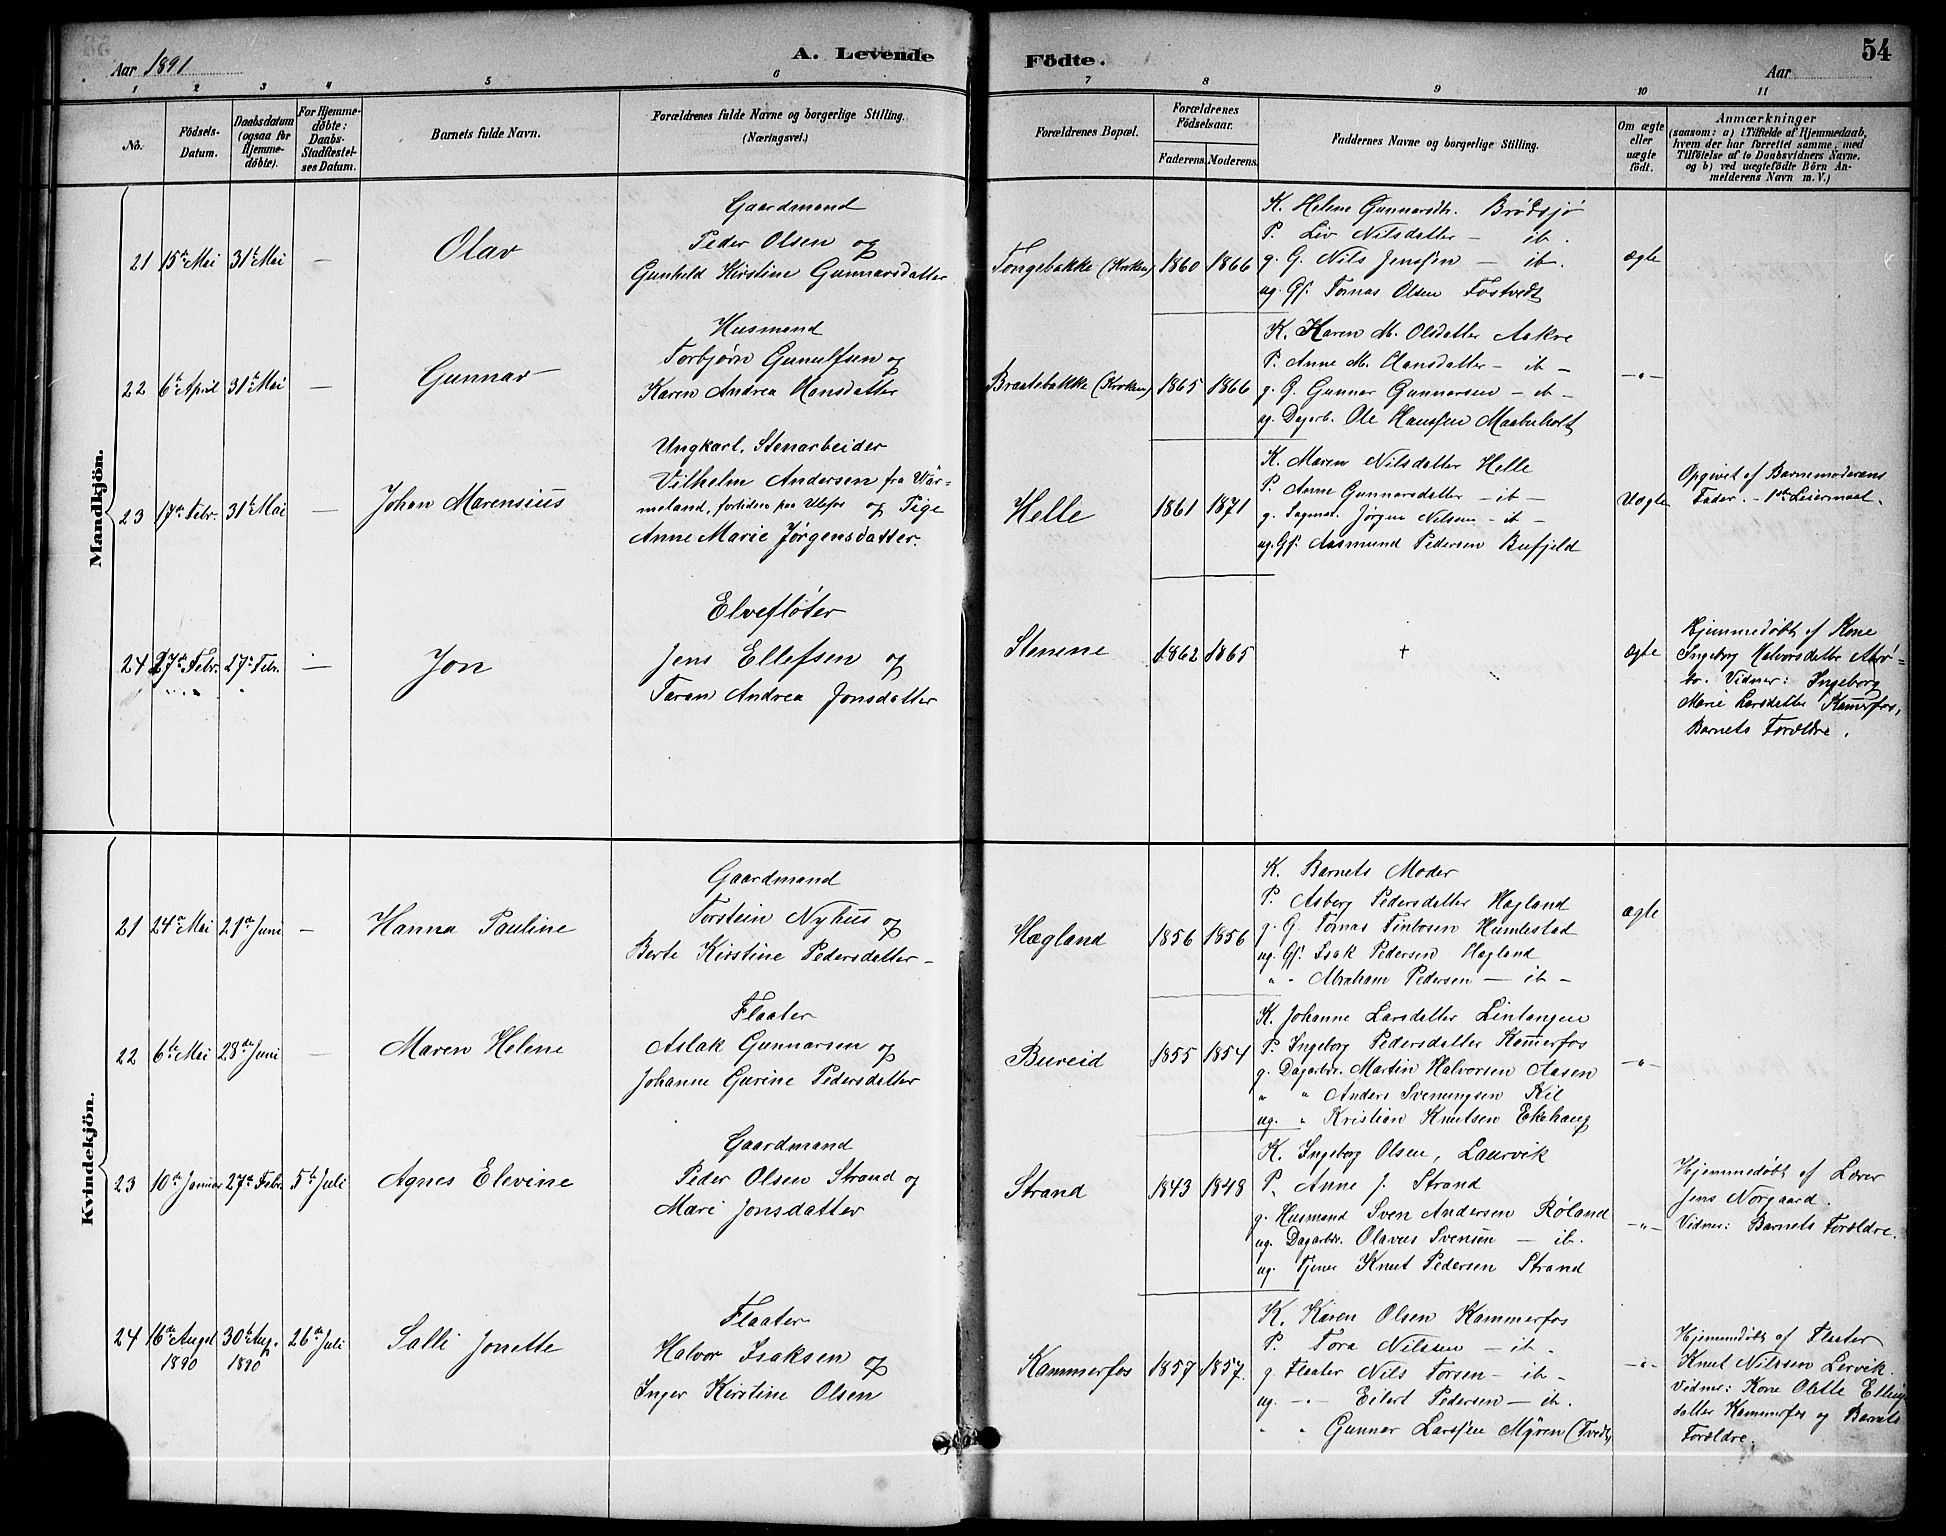 Aar 1891
A. Levende
Födte.
54
Aar
1 2 3 4 5 6 7 8 9 10 11
No.
Födsels-
Datum.
Daabsdatum
(ogsaa for
Hjemme-
döbte).
For Hjemme-
döbte:
Daabs-
Stadfæstel-
ses Datum.
Barnets fulde Navn.
Forældrenes fulde Navne og borgerlige Stilling.
(Næringsvei.)
Forældrenes Bopæl.
Forældrenes
Födselsaar.
Faderens. Moderens.
Faddernes Navne og borgerlige Stilling.
Om ægte
eller
uægte
födt.
Anmærkninger
(saasom: a) i Tilfælde af Hjemmedaab,
hvem der har forrettet samme, med
Tilföielse af to Daabsvidners Navne,
og b) ved uægtefödte Börn An-
melderens Navn m. V.)
Mandkjön.
21 15de Mai 31te Mai — Olav
Gaardmand
Peder Olsen og
Gunhild Kirstine Gunnarsdatter
Tongebakke (Kroken) 1860 1866
K. Helene Gunnarsdtr. Brødsjø
P. Liv Nilsdatter — ib.
g. G. Nils Jenssøn — ib.
ug. Gf. Tornas Olsen Fostvedt
ægte
22 6te April 31te Mai — Gunnar
Husmand
Torbjørn Gunulfsen og
Karen Andrea Hansdatter
Braatebakke (Kroken) 1865 1866
K. Karen M. Olsdatter Aakre
P. Anne M. Hansdatter — ib —
g. G. Gunnar Gunnarsen — ib —
ug. Dagarb. Ole Hanssen Maaberholt
—"—
23 17de Febr. 31te Mai — Johan Marensius
Ungkarl, Stenarbeider
Vilhelm Andersen fra Wär-
meland, fortiden paa Ulefos og Pige
Anne Marie Jørgensdatter.
Helle 1861 1871
K. Maren Nilsdatter Helle
P. Anne Gunnarsdatter — ib —
g. Sagmst. Jørgen Nilsen — ib —
ug. Gf. Aasmund Pedersen Bufjeld
Uægte
Opgivet af Barnemoderens
Fader. — 1ste Leiermaal.
24 27de Febr. 27de Febr. — Jon
Elvefløter
Jens Ellefsen og
Taran Andrea Jonsdatter
Stenene 1862 1865
†
ægte
Hjemmedøbt af Kone
Ingeborg Halvorsdatter
Vidner: Ingeborg
Marie Larsdatter Kammerfos,
Barnets Forældre.
Kvindekjön.
21 24de Mai 21de Juni — Hanna Pauline
Gaardmand
Torstein Nyhus og
Berte Kirstine Pedersdatter —
Hægland 1856 1856
K. Barnets Moder
P. Asberg Pedersdatter Hægland
g. G. Tornas Finbosen Humlestad
ug. Gf. Isak Pedersen Hægland
" " Abraham Pedersen — ib —
ægte
22 6te Mai 28de Juni — Maren Helene
Flaater
Aslak Gunnarsen og
Johanne Gurine Pedersdatter
Bureid 1855 1854
K. Johanne Larsdatter Lintangen
P. Ingeborg Pedersdatter Kammerfos
g. Dagarbdr. Martin Halvorsen Aasen
" " Anders Sveningsen Kil
ug. " Kristian Knutsen Ekehaug
—"—
23 10de Januar 27de Febr. 5te Juli Agnes Elevine
Gaardmand
Peder Olsen Strand og
Mari Jonsdatter
Strand 1843 1848
K. Ingeborg Olsen, Laurvik
P. Anne J. Strand
g. Husmand Sven Andersen Røland
ug. Dagarbdr. Olavus Svensen — ib.
ug. Tjener Knut Pedersen Strand
—"—
Hjemmedøbt af Lærer
Jens Norgaard.
Vidner: Barnets Forældre.
24 16de August 30te Aug. 26de Juli Salli Jonette
1890 1890
Flaater
Halvor Isaksen og
Inger Kirstine Olsen
Kammerfos 1857 1857.
K. Karen Olsen Kammerfos
P. Tora Nilssen — ib.
g. Flaater Nils Torsen — ib —
ug. — " — Eilert Pedersen — ib.
" " Gunnar Larssen Myren (Tvedt)
—"—
Hjemmedøbt af Flaater
Knut Nilssen Lervik.
Vidner: Kone Olette Ellings
datter Kammerfos og Barnets
Forældre.